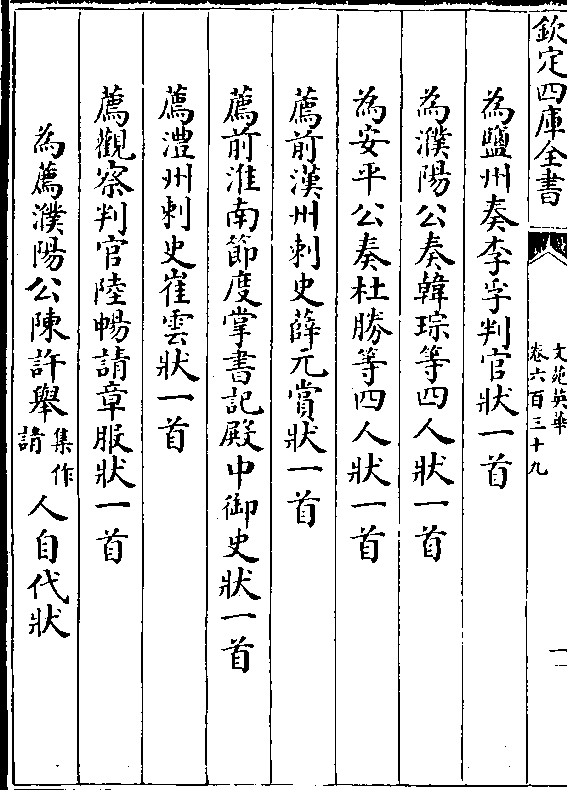 欽定四庫全書
文苑英華
卷六百三十九
一
為鹽州奏李孚判官狀一首
為濮陽公奏韓琮等四人狀一首
為安平公奏杜勝等四人狀一首
薦前漢州刺史薛元賞狀一首
薦前淮南節度掌書記殿中御史狀一首
薦澧州刺史崔雲狀一首
薦觀察判官陸暢請章服狀一首
為薦濮陽公陳許舉集作請人自代狀